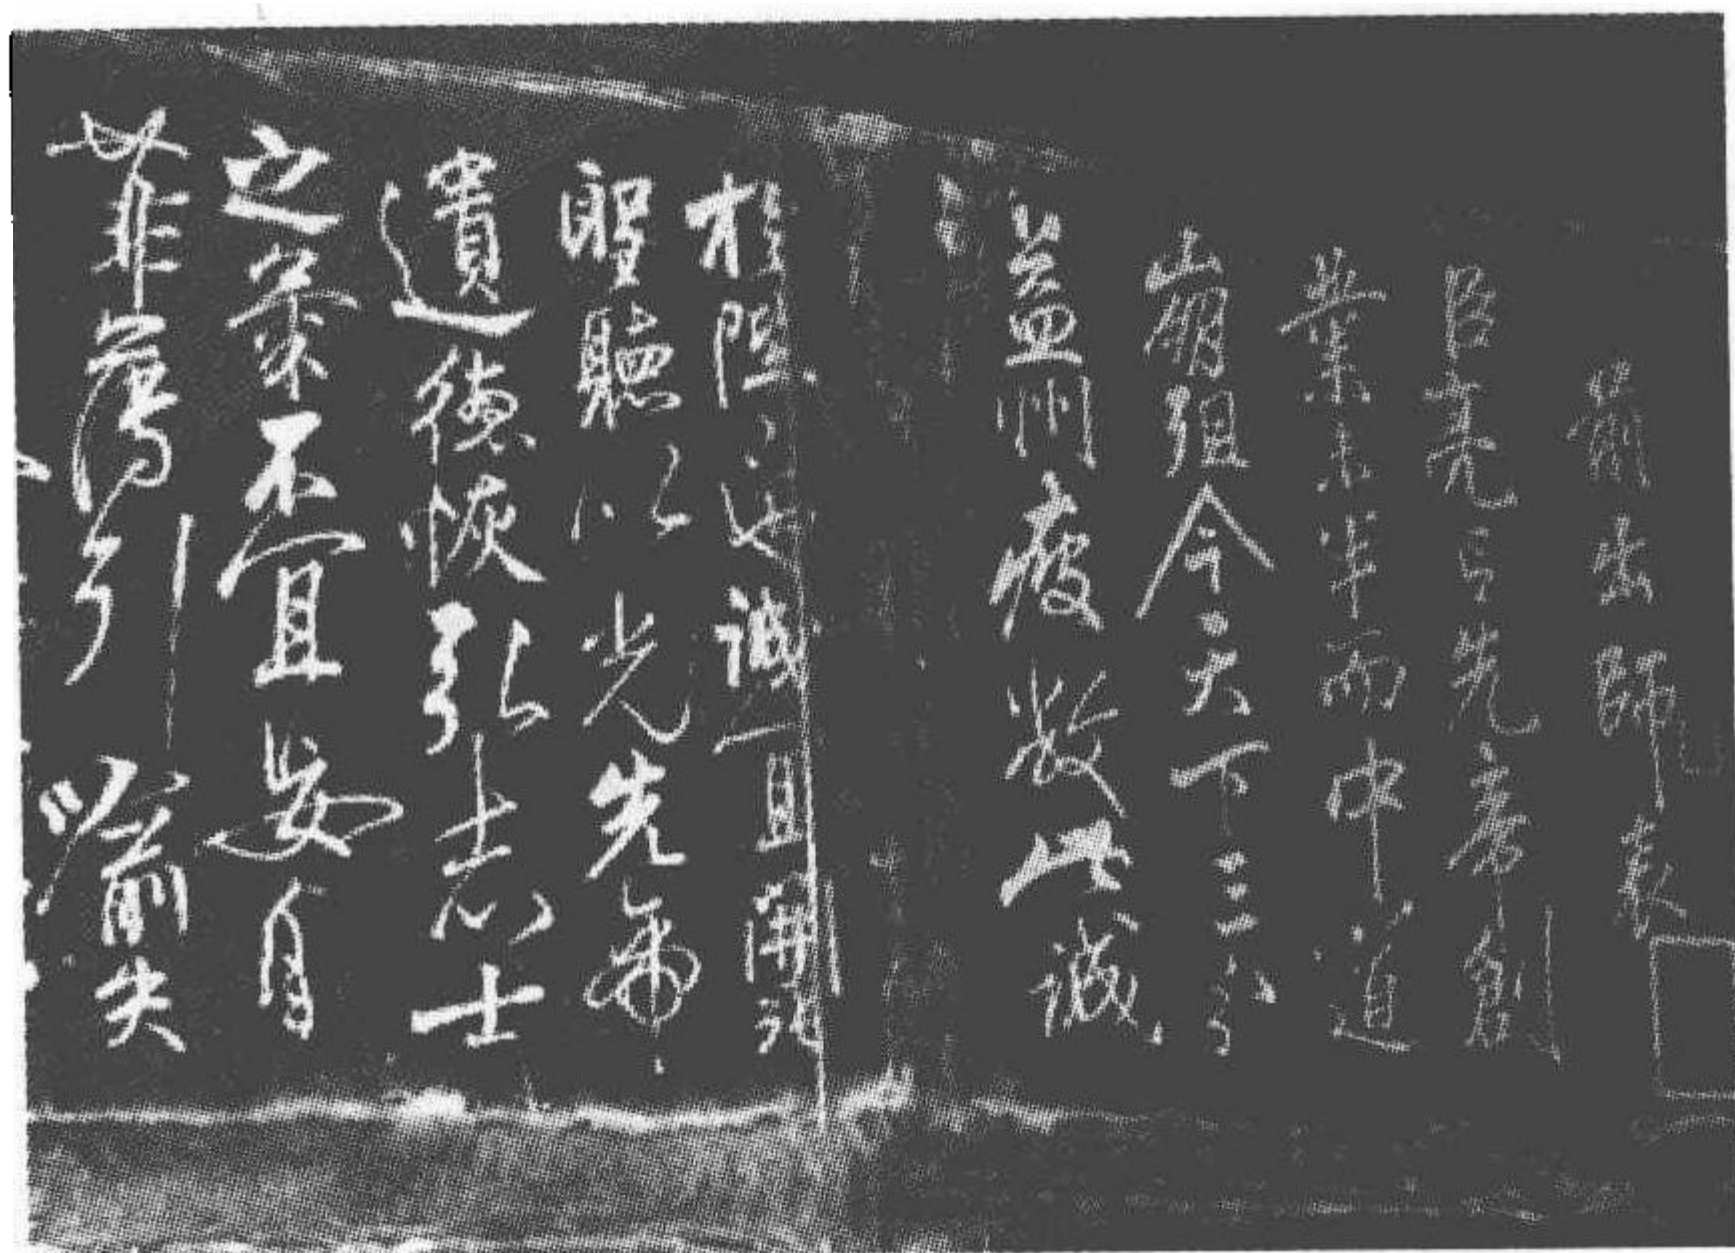 前出師表
臣亮言先帝創
業未半而中道
崩殂今天下三分
益州疲敝此誠
於陛下也誠宜開張
聖聽以光先帝
遺德恢弘志士
之氣不宜妄自
菲薄引喻失